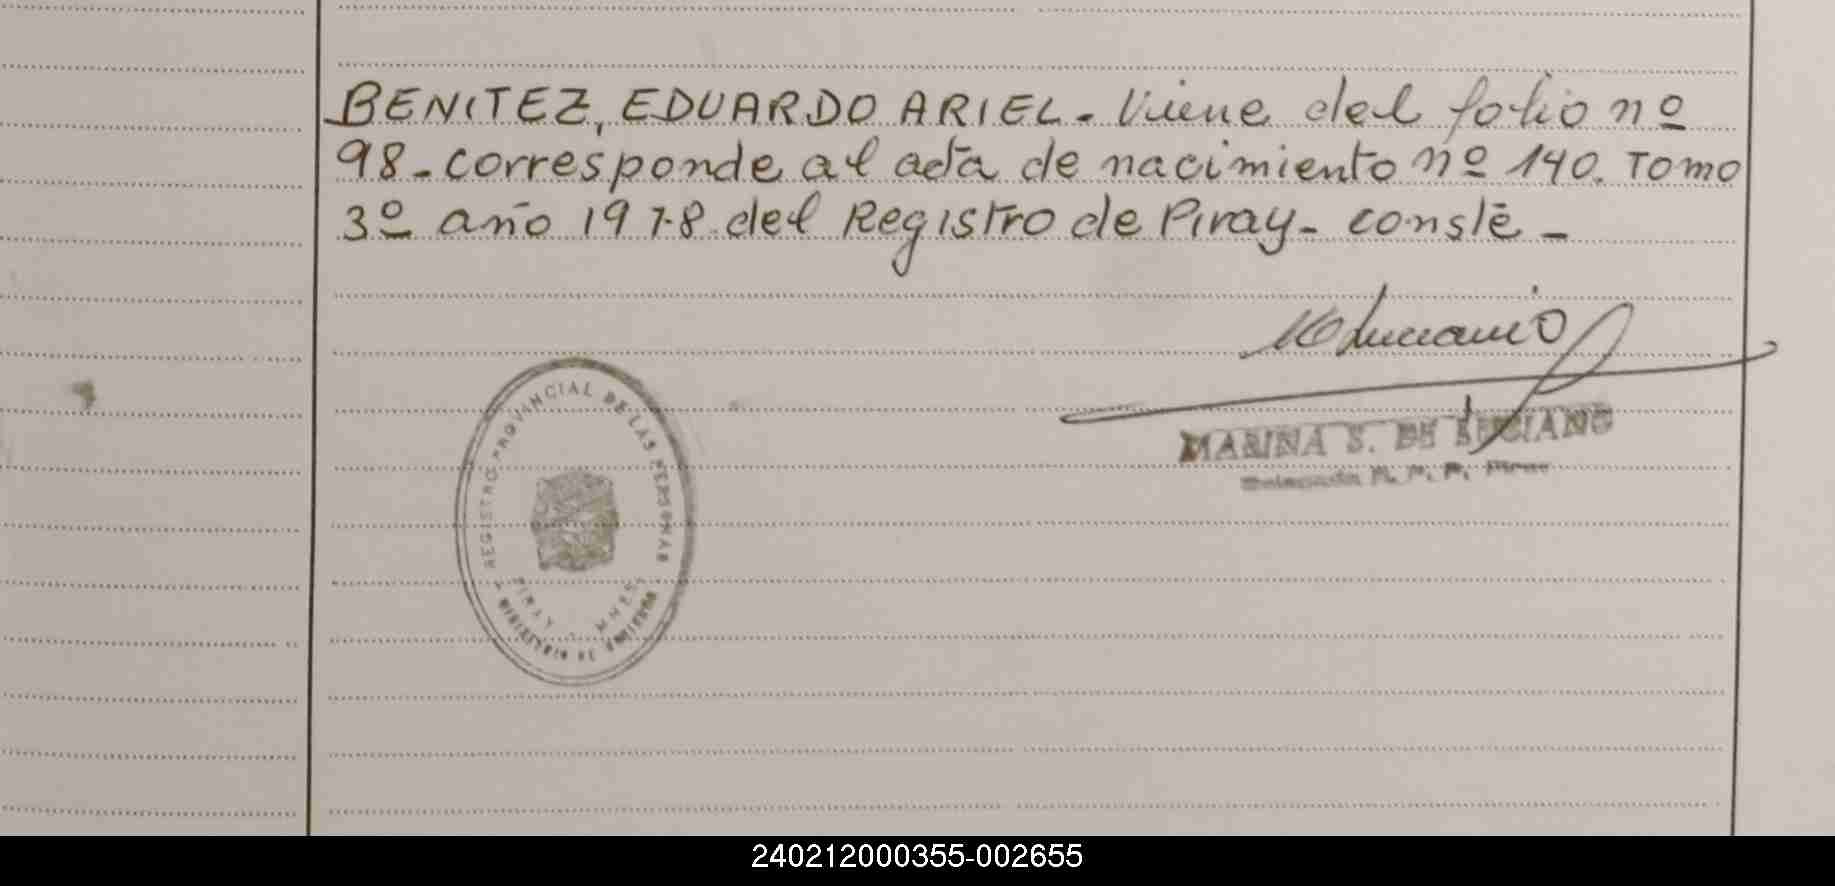 BENITEZ, EDUARDO ARIEL. Viene del folio nº
98- corresponde al acta de nacimiento nº 140. Tomo
3º año 1978 del Registro de Piray- conste -
MARINA S. DE LUCIANO
Delegada R. P. P. Piray
REGISTRO PROVINCIAL DE LAS PERSONAS
PIRAY - MNES
MINISTERIO DE GOBIERNO
240212000355-002655